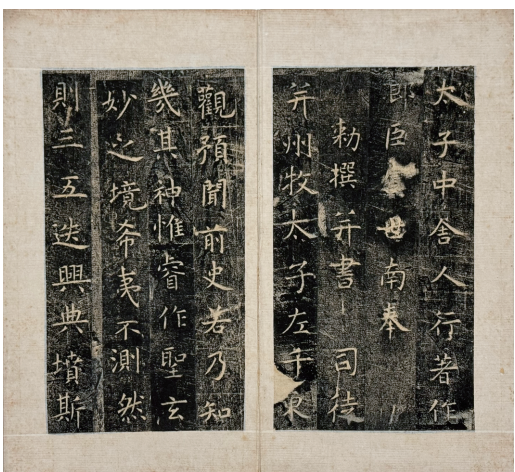 太子中舍人行著作
郎臣虞世南奉
勑撰并書 司徒
并州牧太子左千
觀預聞前史若乃知
幾其神惟睿作聖玄
妙之境希夷不測然
則三五迭興典墳斯